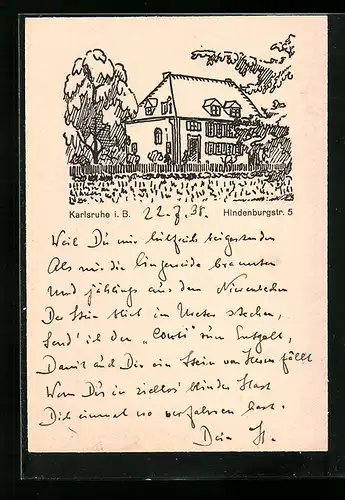 Karlsruhe i. B. 22.7.38. Hindenburgstr. 5
Weil Du mir hilfreich beigestanden
Als mir die Eingeweide brannten
Und jählings aus dem Nierenbecken
Der Stein blieb im Ureter stecken,
Send' ich den „Conti" zum Entgelt,
Damit auch Dir ein Stein vom Herzen fällt
Wenn Du's in ziellos' blinder Hast
Dich einmal wo verfahren hast.
Dein H.